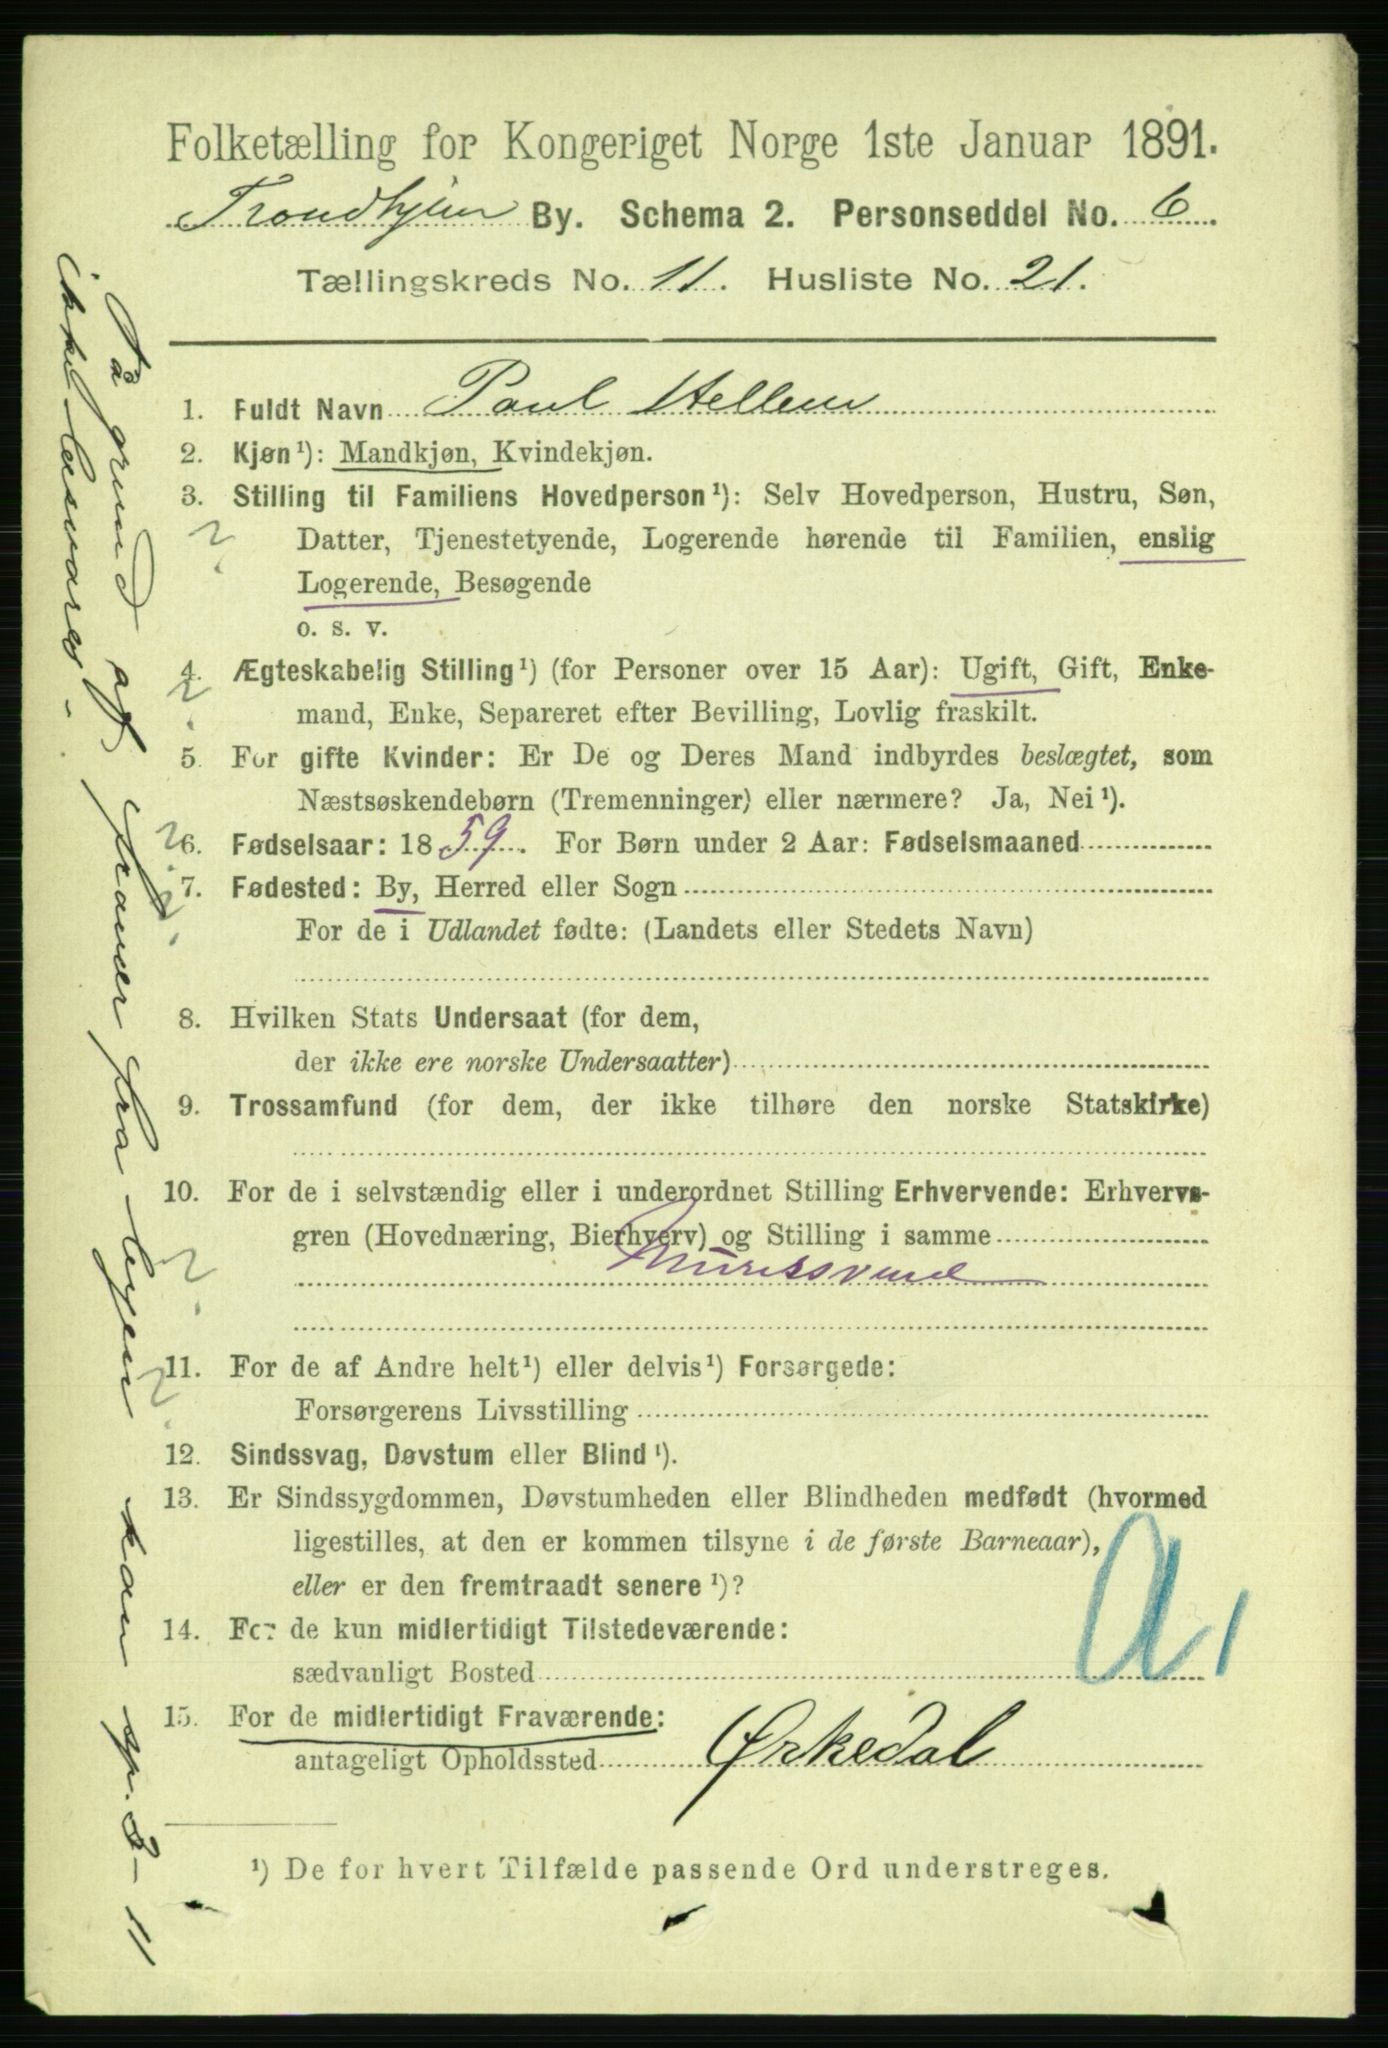 Folketælling for Kongeriget Norge 1ste Januar 1891.
Trondhjem By. Schema 2. Personseddel No. 6.
Tællingskreds No. 11. Husliste No. 21.
1. Fuldt Navn Paul Hellem
2. Kjøn¹): Mandkjøn, Kvindekjøn.
3. Stilling til Familiens Hovedperson¹): Selv Hovedperson, Hustru, Søn,
?
Datter, Tjenestetyende, Logerende hørende til Familien, enslig
Logerende, Besøgende
o. s. v.
4. Ægteskabelig Stilling¹) (for Personer over 15 Aar): Ugift, Gift, Enke-
?
mand, Enke, Separeret efter Bevilling, Lovlig fraskilt.
5. For gifte Kvinder: Er De og Deres Mand indbyrdes beslægtet, som
Næstsøskendebørn (Tremenninger) eller nærmere? Ja, Nei¹).
?
6. Fødselsaar: 1859. For Børn under 2 Aar: Fødselsmaaned
7. Fødested: By, Herred eller Sogn
?
For de i Udlandet fødte: (Landets eller Stedets Navn)
8. Hvilken Stats Undersaat (for dem,
der ikke ere norske Undersaatter)
9. Trossamfund (for dem, der ikke tilhøre den norske Statskirke)
10. For de i selvstændig eller i underordnet Stilling Erhvervende: Erhvervs-
gren (Hovednæring, Bierhverv) og Stilling i samme
?
Murersvend
11. For de af Andre helt¹) eller delvis¹) Forsørgede:
?
Forsørgerens Livsstilling
12. Sindssvag, Døvstum eller Blind¹).
13. Er Sindssygdommen, Døvstumheden eller Blindheden medfødt (hvormed
ligestilles, at den er kommen tilsyne i de første Barneaar),
eller er den fremtraadt senere¹)?
14. For de kun midlertidigt Tilstedeværende:
sædvanligt Bosted
A1
15. For de midlertidigt Fraværende:
antageligt Opholdssted Ørkedal
¹) De for hvert Tilfælde passende Ord understreges.
På grund af fravær fra byen kan sp. 3-11
ikke besvares.